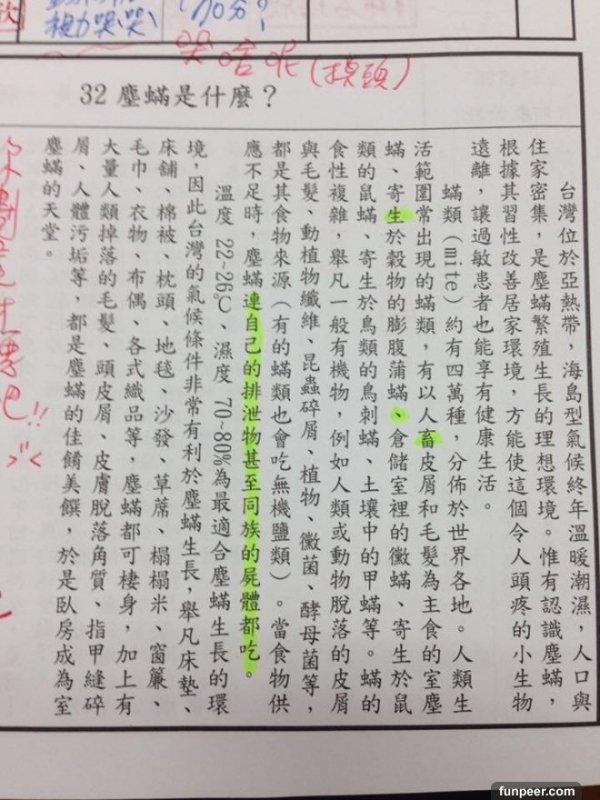 視力哭(哭)
哭啥呢(摸頭)
32 塵蟎是什麼?
台灣位於亞熱帶,海島型氣候終年溫暖潮濕,人口與
住家密集,是塵蟎繁殖生長的理想環境。惟有認識塵蟎,
根據其習性改善居家環境,方能使這個令人頭疼的小生物
遠離,讓過敏患者也能享有健康生活。
蟎類(mite)約有四萬種,分佈於世界各地。人類生
活範圍常出現的蟎類,有以人畜皮屑和毛髮為主食的室塵
蟎、寄生於穀物的膨腹蒲蟎、倉儲室裡的黴蟎、寄生於鼠
類的鼠蟎、寄生於鳥類的鳥刺蟎、土壤中的甲蟎等。蟎的
食性複雜,舉凡一般有機物,例如人類或動物脫落的皮屑
與毛髮、動植物纖維、昆蟲碎屑、植物、黴菌、酵母菌等,
都是其食物來源(有的蟎類也會吃無機鹽類)。當食物供
應不足時,塵蟎連自己的排泄物甚至同族的屍體都吃。
溫度 22~26℃、濕度 70~80%為最適合塵蟎生長的環
境,因此台灣的氣候條件非常有利於塵蟎生長,舉凡床墊、
床舖、棉被、枕頭、地毯、沙發、草蓆、榻榻米、窗簾、
毛巾、衣物、布偶、各式織品等,塵蟎都可棲身,加上有
大量人類掉落的毛髮、頭皮屑、皮膚脫落角質、指甲縫碎
屑、人體污垢等,都是塵蟎的佳餚美饌,於是臥房成為室
塵蟎的天堂。
funpeer.com